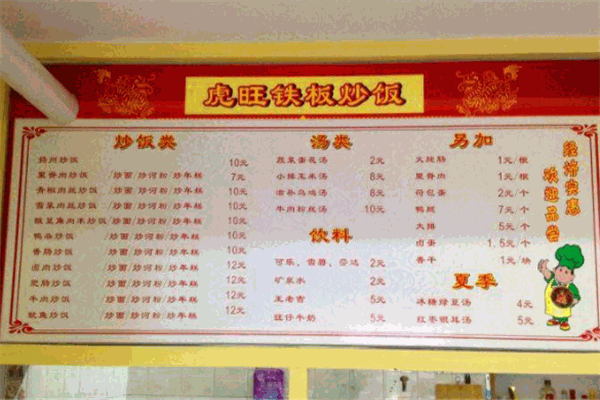 虎旺铁板炒饭
炒饭类
扬州炒饭 10元
里脊肉炒饭 /炒面/炒河粉/炒年糕 7元
青椒肉丝炒饭 /炒面/炒河粉/炒年糕 10元
雪菜肉丝炒饭 /炒面/炒河粉/炒年糕 10元
肉末炒饭 /炒面/炒河粉/炒年糕 10元
炒饭 /炒面/炒河粉/炒年糕 10元
香肠炒饭 /炒面/炒河粉/炒年糕 10元
卤肉炒饭 /炒面/炒河粉/炒年糕 12元
肥肠炒饭 /炒面/炒河粉/炒年糕 12元
牛肉炒饭 /炒面/炒河粉/炒年糕 12元
鱿鱼炒饭 /炒面/炒河粉/炒年糕 12元
汤类
蔬菜蛋花汤 2元
小排玉米汤 8元
滋补乌鸡汤 8元
牛肉粉丝汤 10元
饮料
可乐、雪碧、芬达 2元
矿泉水 2元
王老吉 5元
旺仔牛奶 5元
另加
火腿肠 1元/根
里脊肉 1元/根
荷包蛋 2元/个
鸭腿 7元/个
大排 5元/个
卤蛋 1.5元/个
香干 1元/块
夏季
冰糖绿豆汤 4元
红枣银耳汤 5元
经济实惠
欢迎品尝